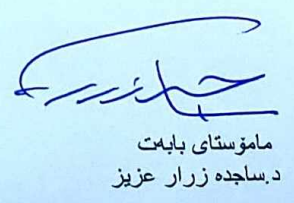 مامۆستای بابەت
د.ساجدە زرار عزیز